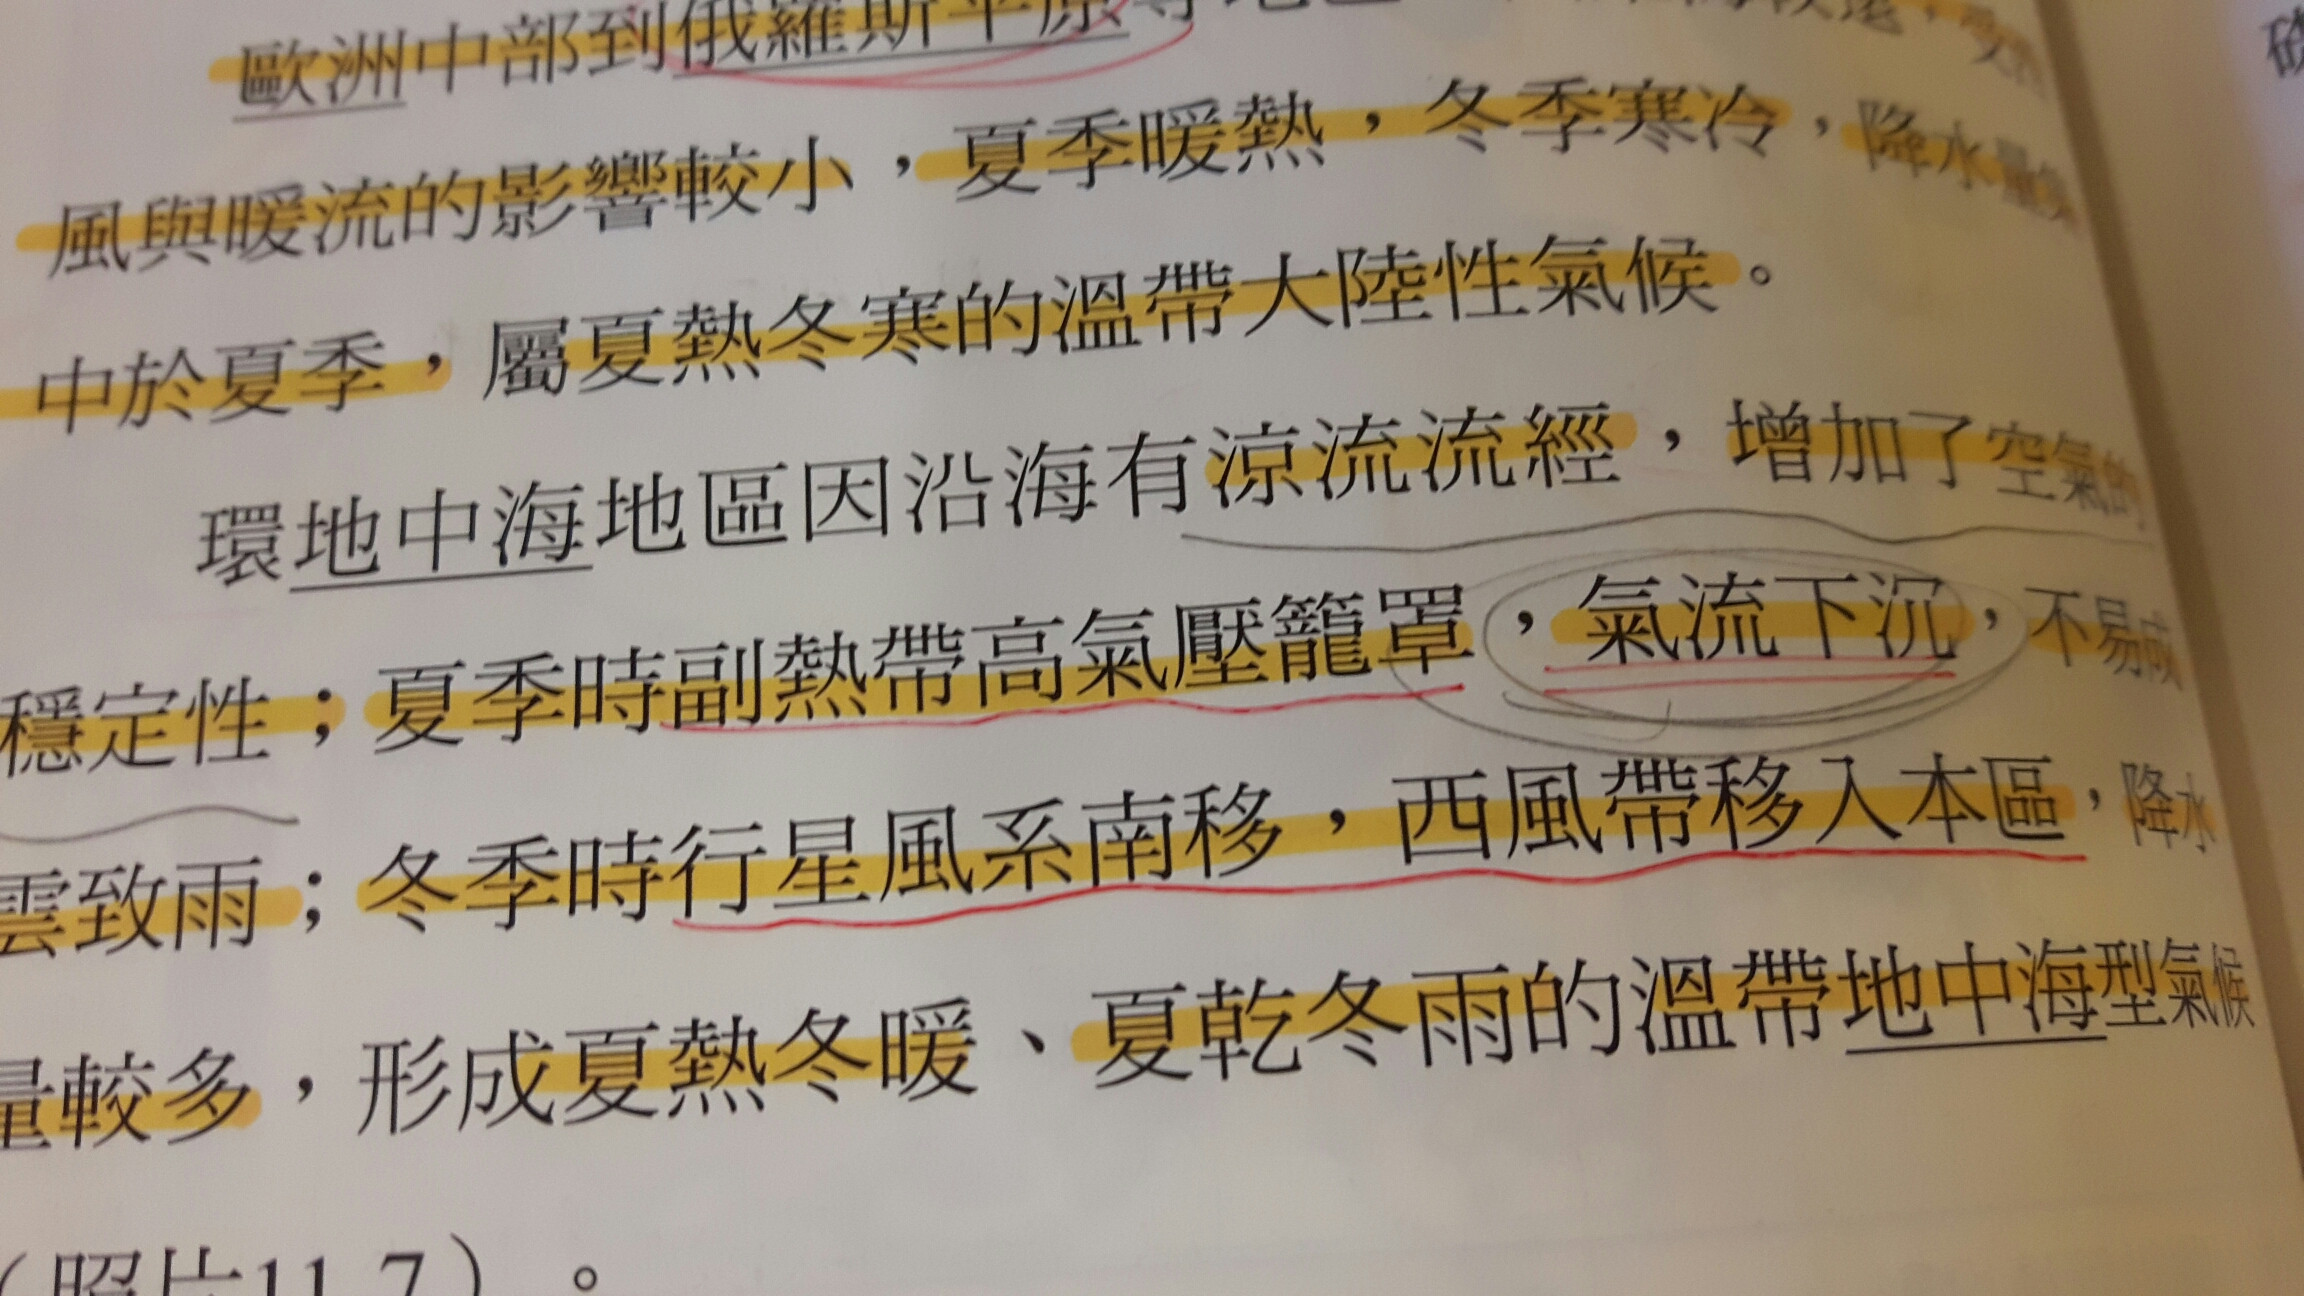 歐洲中部到俄羅斯平原等地區
風與暖流的影響較小，夏季暖熱，冬季寒冷，降水量集
中於夏季，屬夏熱冬寒的溫帶大陸性氣候。
環地中海地區因沿海有涼流流經，增加了空氣的
穩定性；夏季時副熱帶高氣壓籠罩，氣流下沉，不易成
雲致雨；冬季時行星風系南移，西風帶移入本區，降水
量較多，形成夏熱冬暖、夏乾冬雨的溫帶地中海型氣候
（照片11.7）。